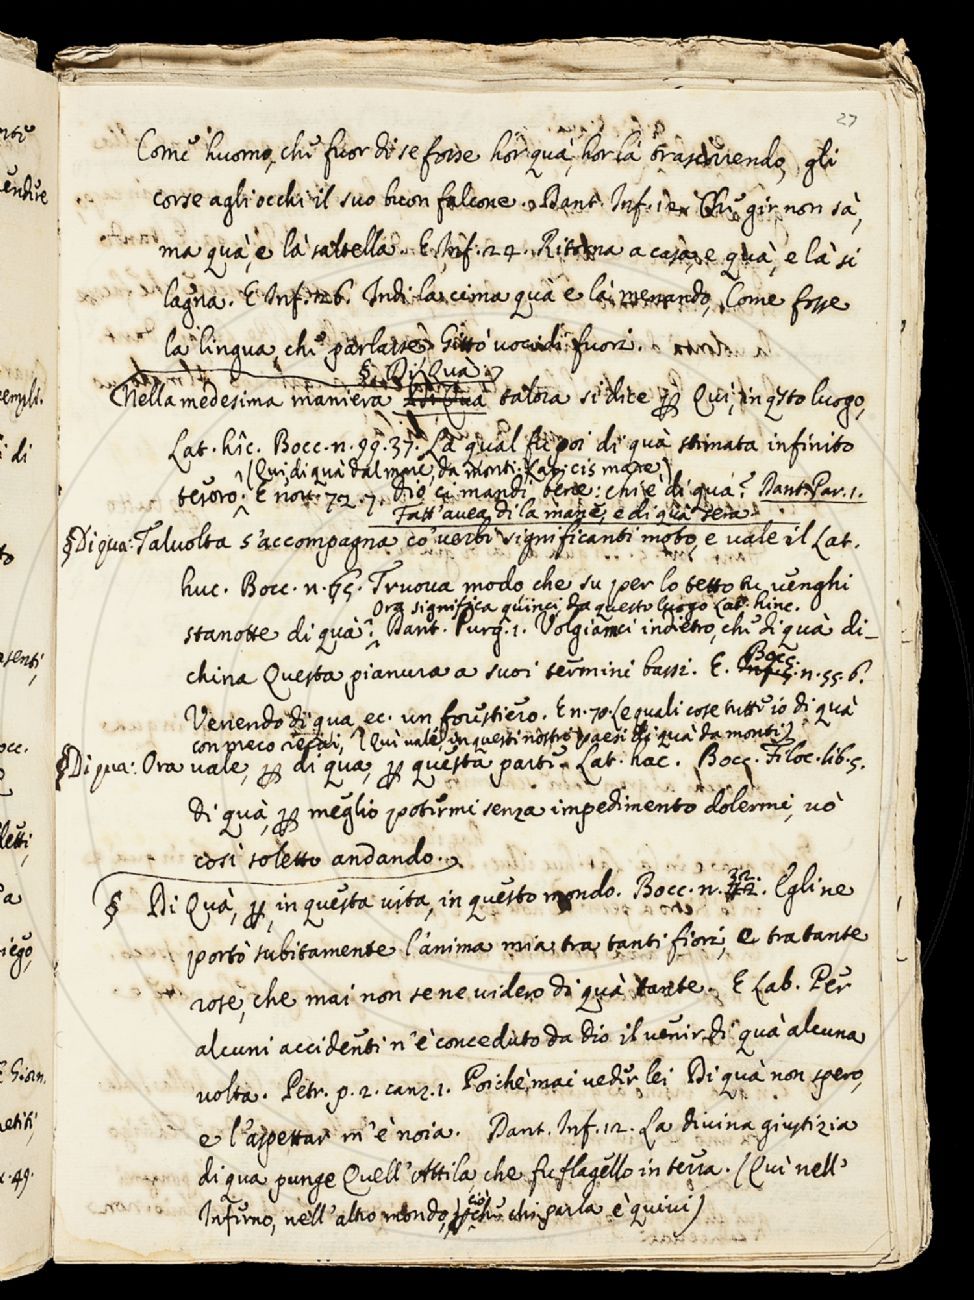 27
Come huomo, che fuor di se fosse hor quà, hor là trascorrendo, gli
corse agli occhi il suo buon falcone. Dant. Inf. 12. Che gir non sà,
ma quà, e là saltella. E Inf. 24. Ritorna a casa, e quà, e là si
lagna. E Inf. 26. Indi la cima quà e là menando, Come fosse
la lingua, che parlasse, Gittò voce di fuori.
§. Di Quà.
Nella medesima maniera Di Quà talora si dice ꝑ Quì, in qsto luogo,
Lat. hîc. Bocc. n. 99. 37. La qual fu poi di quà stimata infinito
(Qui, di quà dal mare, da monti. Lat. cis mare)
tesoro. E nov. 72. 7. Dio ci mandi bene: chi è di quà? Dant. Par. 1.
Fatt'avea di la mane, e di quà sera
§ Di qua: Talvolta s'accompagna co' verbi significanti moto, e vale il Lat.
huc. Bocc. n. 65. Truova modo che su per lo tetto tu venghi
Ora significa quinci da questo luogo Lat. hinc.
stanotte di quà. Dant. Purg. 1. Volgiamci indietro, che di quà di-
china Questa pianura a suoi termini bassi. E. Inf. Bocc. n. 55. 6.
Venendo di qua, ec. un forestiero. E n. 70. (e quali cose tutte io di quà
con meco recai, (Quì vale, in questi nostri paesi di quà da monti)
§ Di qua: Ora vale, ꝑ di qua, ꝑ questa parte. Lat. hac. Bocc. Filoc. lib. 5.
di quà, ꝑ meglio potermi senza impedimento dolermi, vò
così soletto andando.
§ Di Quà, ꝑ, in questa vita, in questo mondo. Bocc. n. 32. Egli ne
portò subitamente l'anima mia tra tanti fiori, e tra tante
rose, che mai non se ne videro di quà tante. E Lab. Per
alcuni accidenti n'è conceduto da dio il venir di quà alcuna
volta. Petr. p. 2. canz. 1. Poichè mai veder lei Di quà non spero,
e l'aspettar m'è noia. Dant. Inf. 12. La divina giustizia
di qua punge Quell'Attila, che fu flagello in terra. (Quì nell'
Inferno, nell'altro mondo, ciò chi parla è quivi)